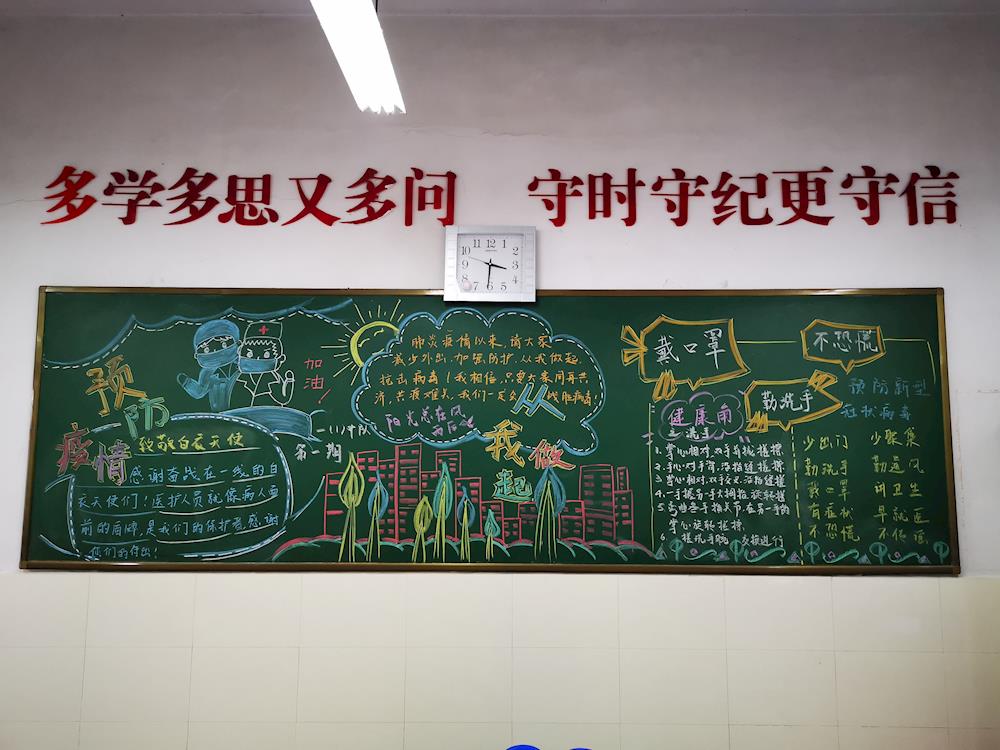 多学多思又多问 守时守纪更守信
10 11 12 1 2 3 4 5 6 7 8 9
预防疫情
加油!
致敬白衣天使
感谢奋战在一线的白
衣天使们!医护人员就像病人面
前的盾牌,是我们的保护者,感谢
你们的付出!
第一期
肺炎疫情以来,请大家
减少外出,加强防护,从我做起,
抗击病毒!我相信,只要大家同舟共
济,共渡难关,我们一定会战胜病毒!
阳光总在风
雨后
从我做起
戴口罩
不恐慌
勤洗手
健康角
预防新型
冠状病毒
1. 掌心相对,双手互相揉搓
2. 手心对手背,沿指缝揉搓
3. 掌心相对,双手交叉,沿指缝揉
4. 一手握另一手大拇指旋转揉
5. 弯曲各手指关节,在另一手的
掌心旋转揉搓
6. 揉洗手腕 交换进行
少出门 少聚集
勤洗手 勤通风
戴口罩 讲卫生
有症状 早就医
不恐慌 不传谣